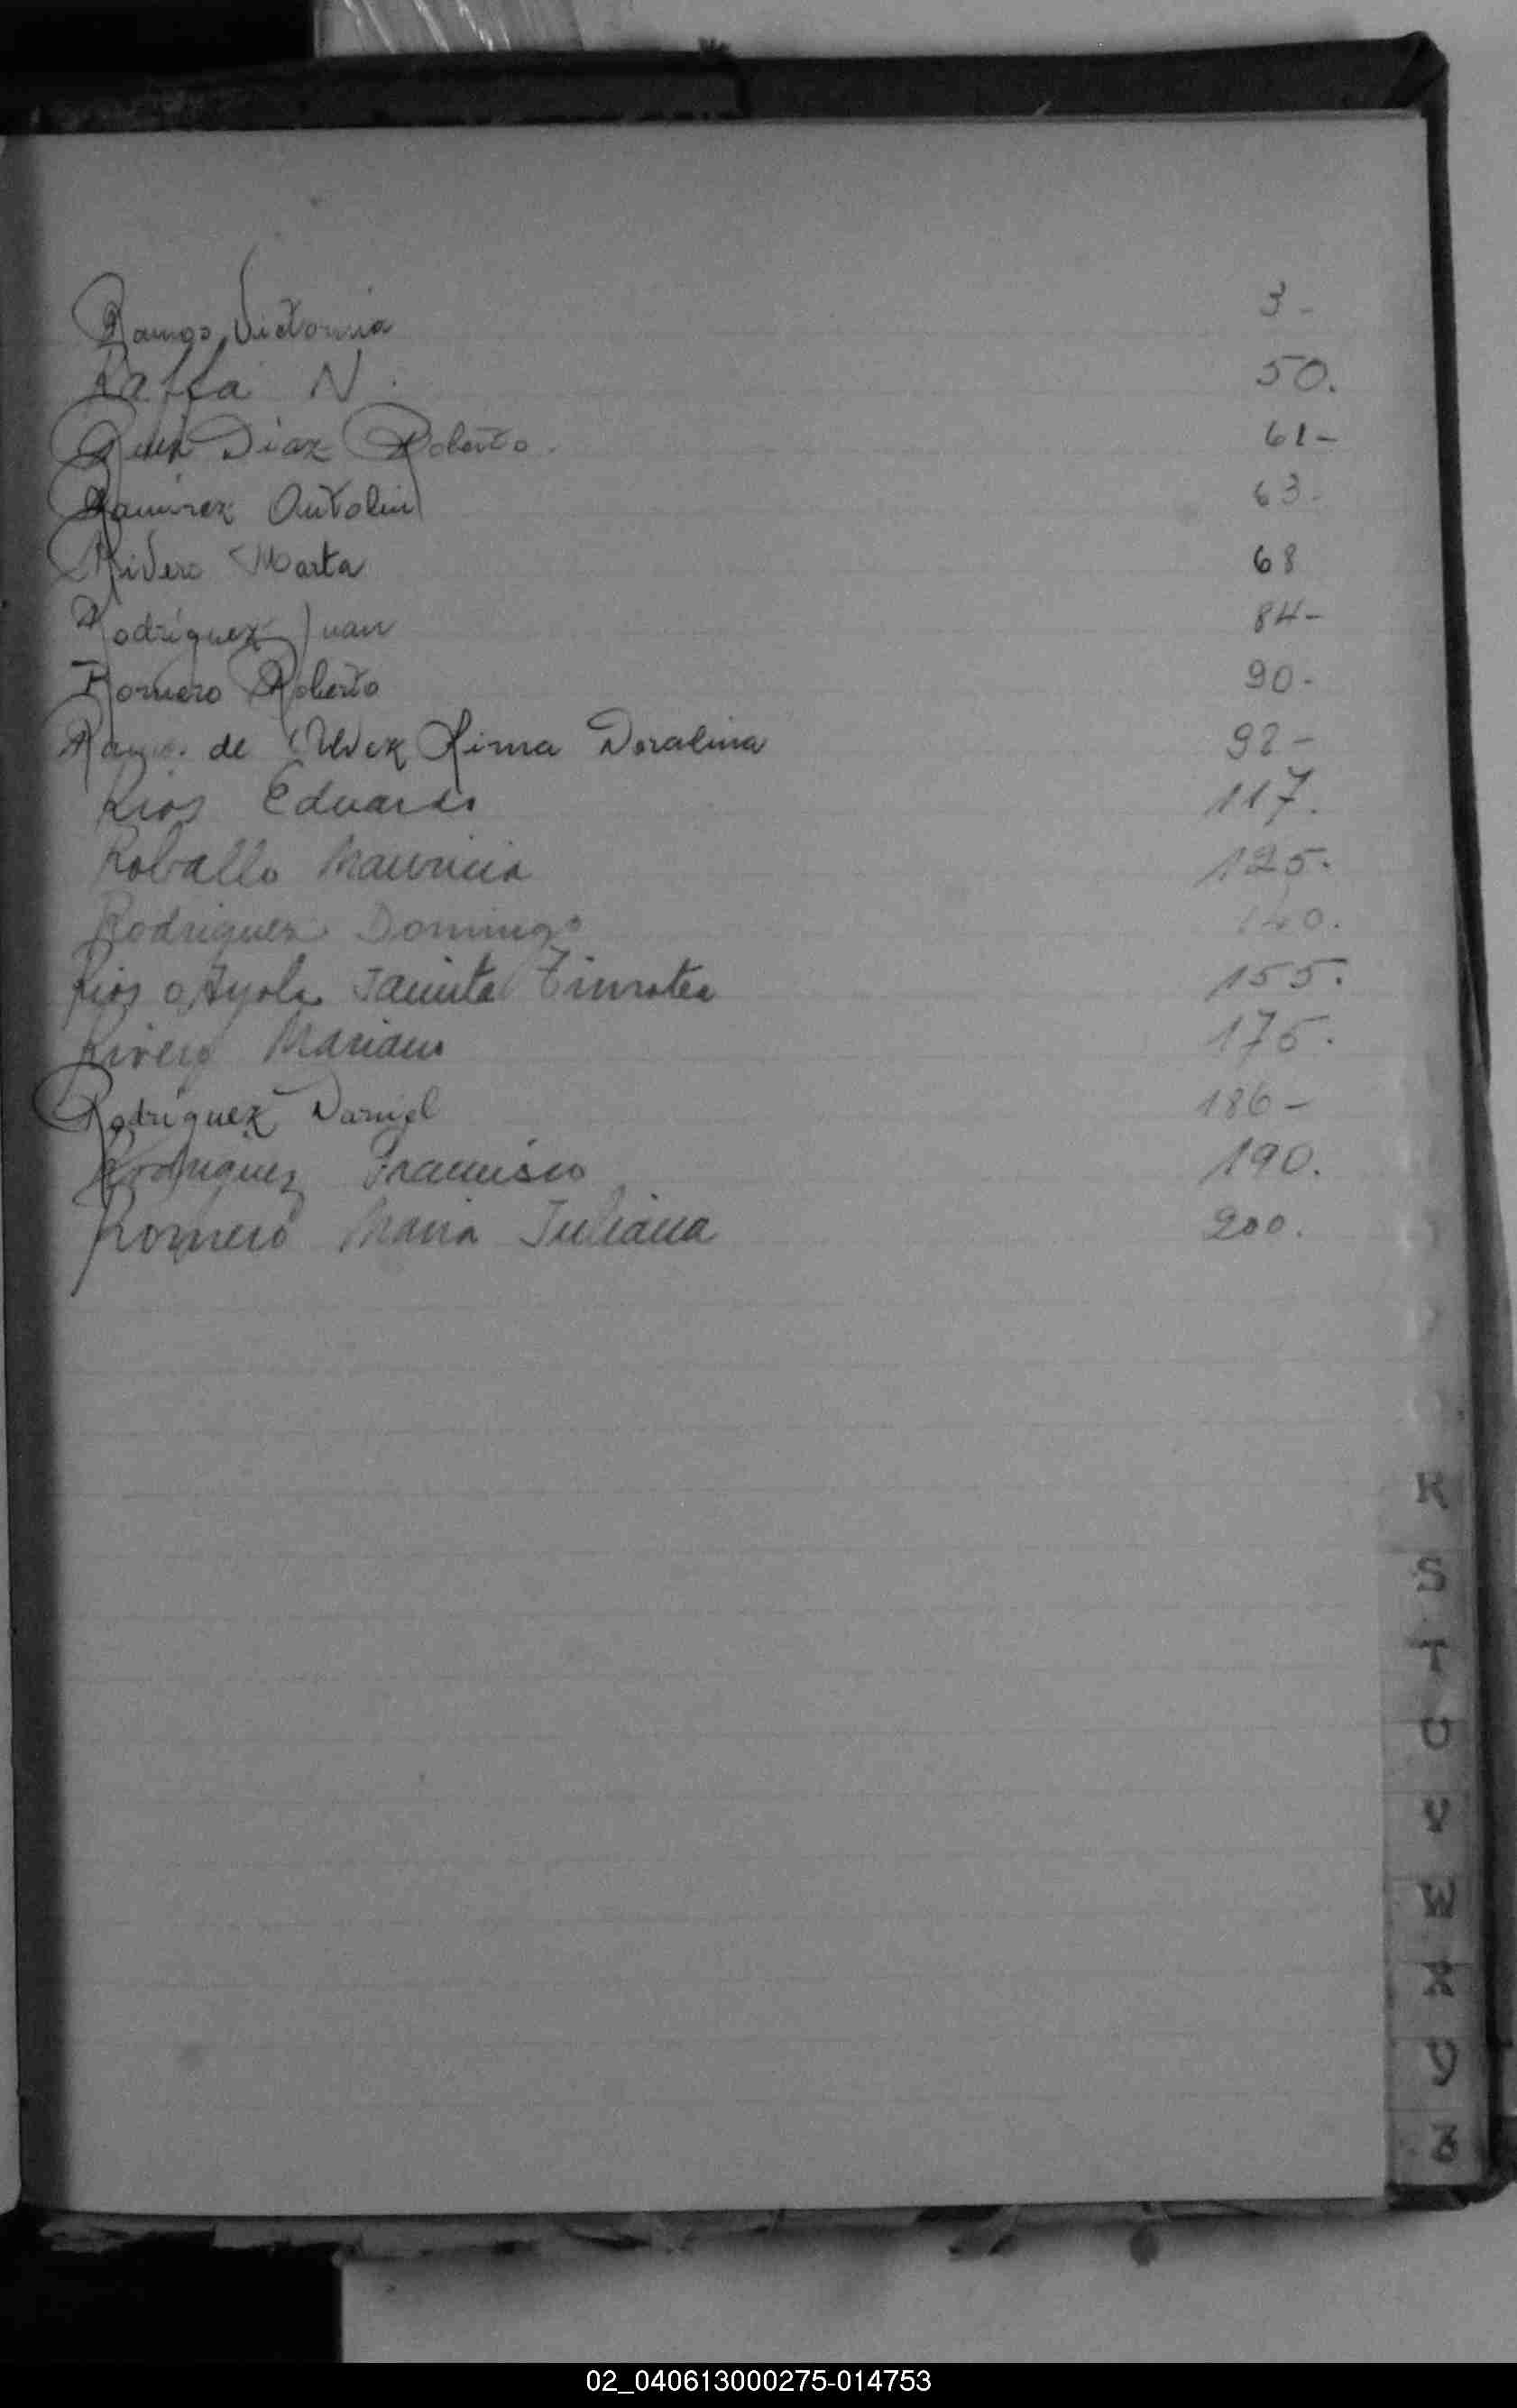 Ramos Victorina 3-
Raffa N. 50.
Diaz Roberto. 61-
Ramirez Antolin 63-
Rivero Marta 68
Rodríguez Juan 84-
Romero Roberto 90-
de Doralina 92-
Rios Eduardo 117.
Roballo Mauricia 125.
Rodriguez Domingo 140.
Rios o Ayola Jacinta Timotea 155.
Rivero Mariano 175.
Rodríguez Daniel 186-
Rodriguez Francisco 190.
Romero Maria Juliana 200.
R
S
T
U
V
W
X
Y
Z
02_040613000275-014753